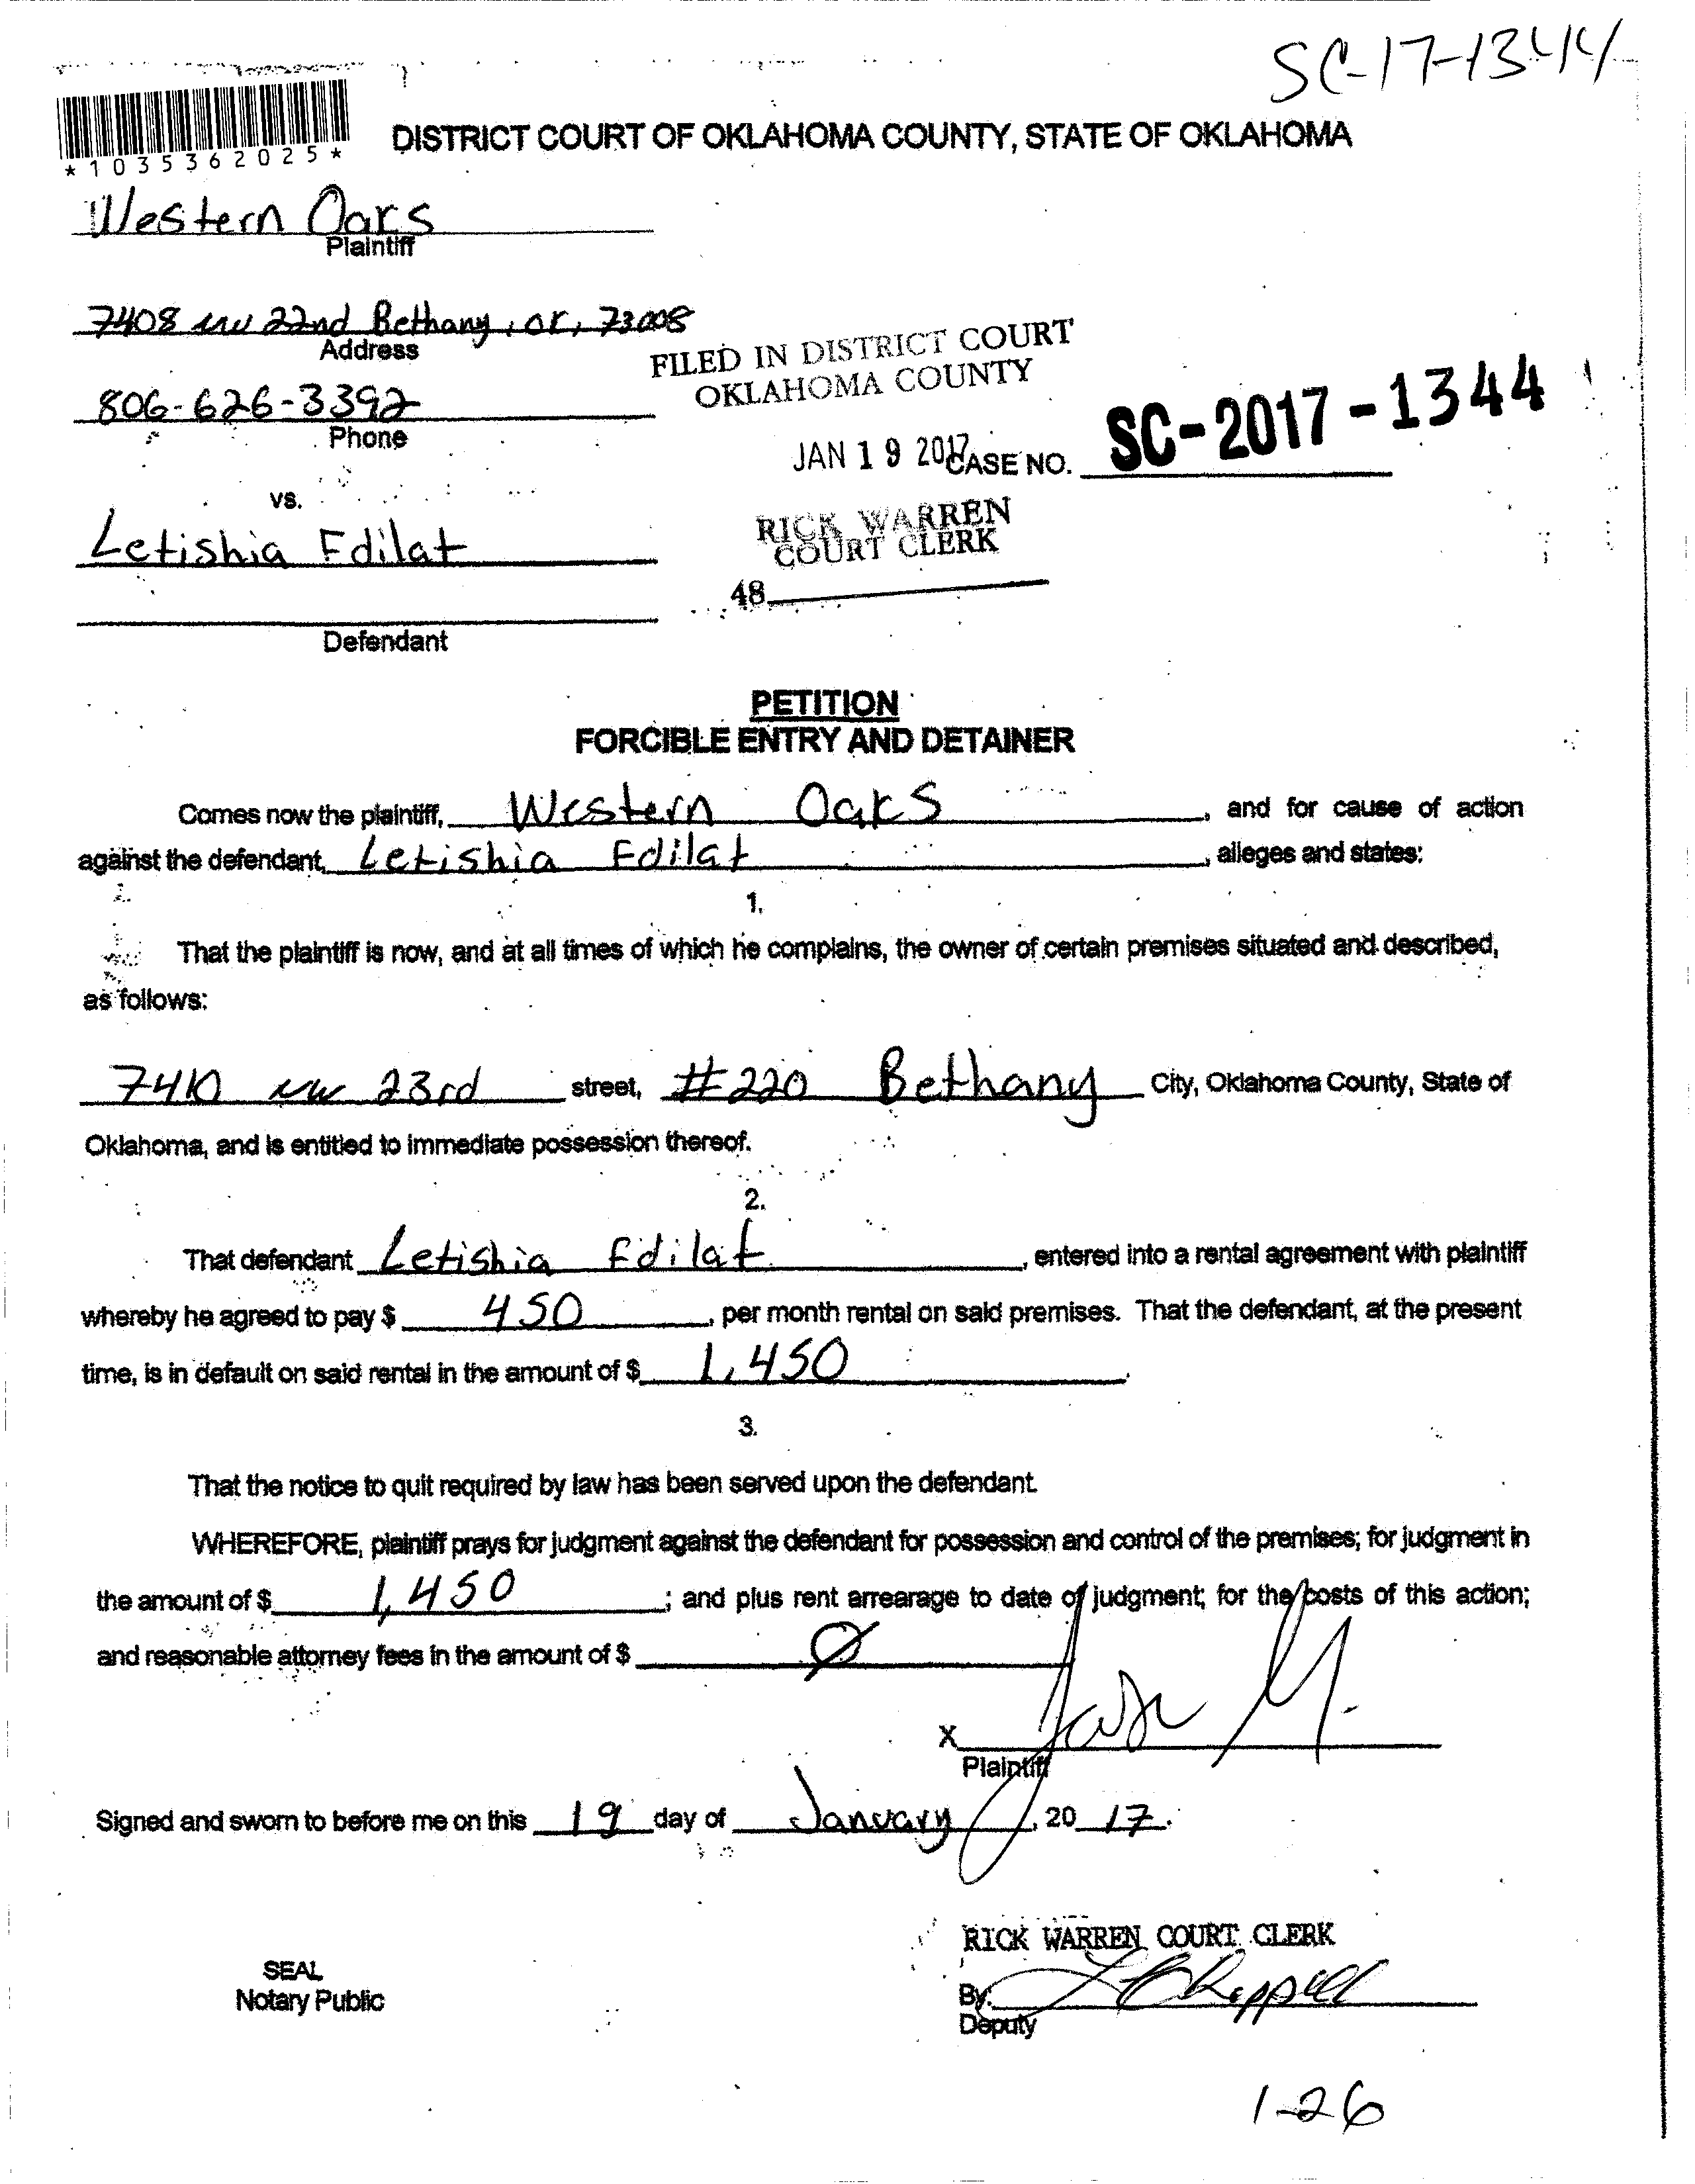 SC-17-1344
*1035362025*
DISTRICT COURT OF OKLAHOMA COUNTY, STATE OF OKLAHOMA
Western Oaks
Plaintiff
7408 NW 22nd Bethany, OK, 73008
Address
FILED IN DISTRICT COURT
OKLAHOMA COUNTY
806-626-3392
Phone
JAN 19 2017
CASE NO. SC-2017-1344
vs.
RICK WARREN
COURT CLERK
Letishia Edilat
48
Defendant
PETITION
FORCIBLE ENTRY AND DETAINER
Comes now the plaintiff, Western Oaks, and for cause of action
against the defendant, Letishia Edilat, alleges and states:
1.
That the plaintiff is now, and at all times of which he complains, the owner of certain premises situated and described,
as follows:
7410 NW 23rd street, #220 Bethany City, Oklahoma County, State of
Oklahoma, and is entitled to immediate possession thereof.
2.
That defendant Letishia Edilat, entered into a rental agreement with plaintiff
whereby he agreed to pay $ 450, per month rental on said premises. That the defendant, at the present
time, is in default on said rental in the amount of $ 1,450.
3.
That the notice to quit required by law has been served upon the defendant.
WHEREFORE, plaintiff prays for judgment against the defendant for possession and control of the premises; for judgment in
the amount of $ 1,450; and plus rent arrearage to date of judgment; for the costs of this action;
and reasonable attorney fees in the amount of $ Ø
X
Plaintiff
Signed and sworn to before me on this 19 day of January, 20 17.
RICK WARREN COURT CLERK
SEAL
Notary Public
By:
Deputy
1-26